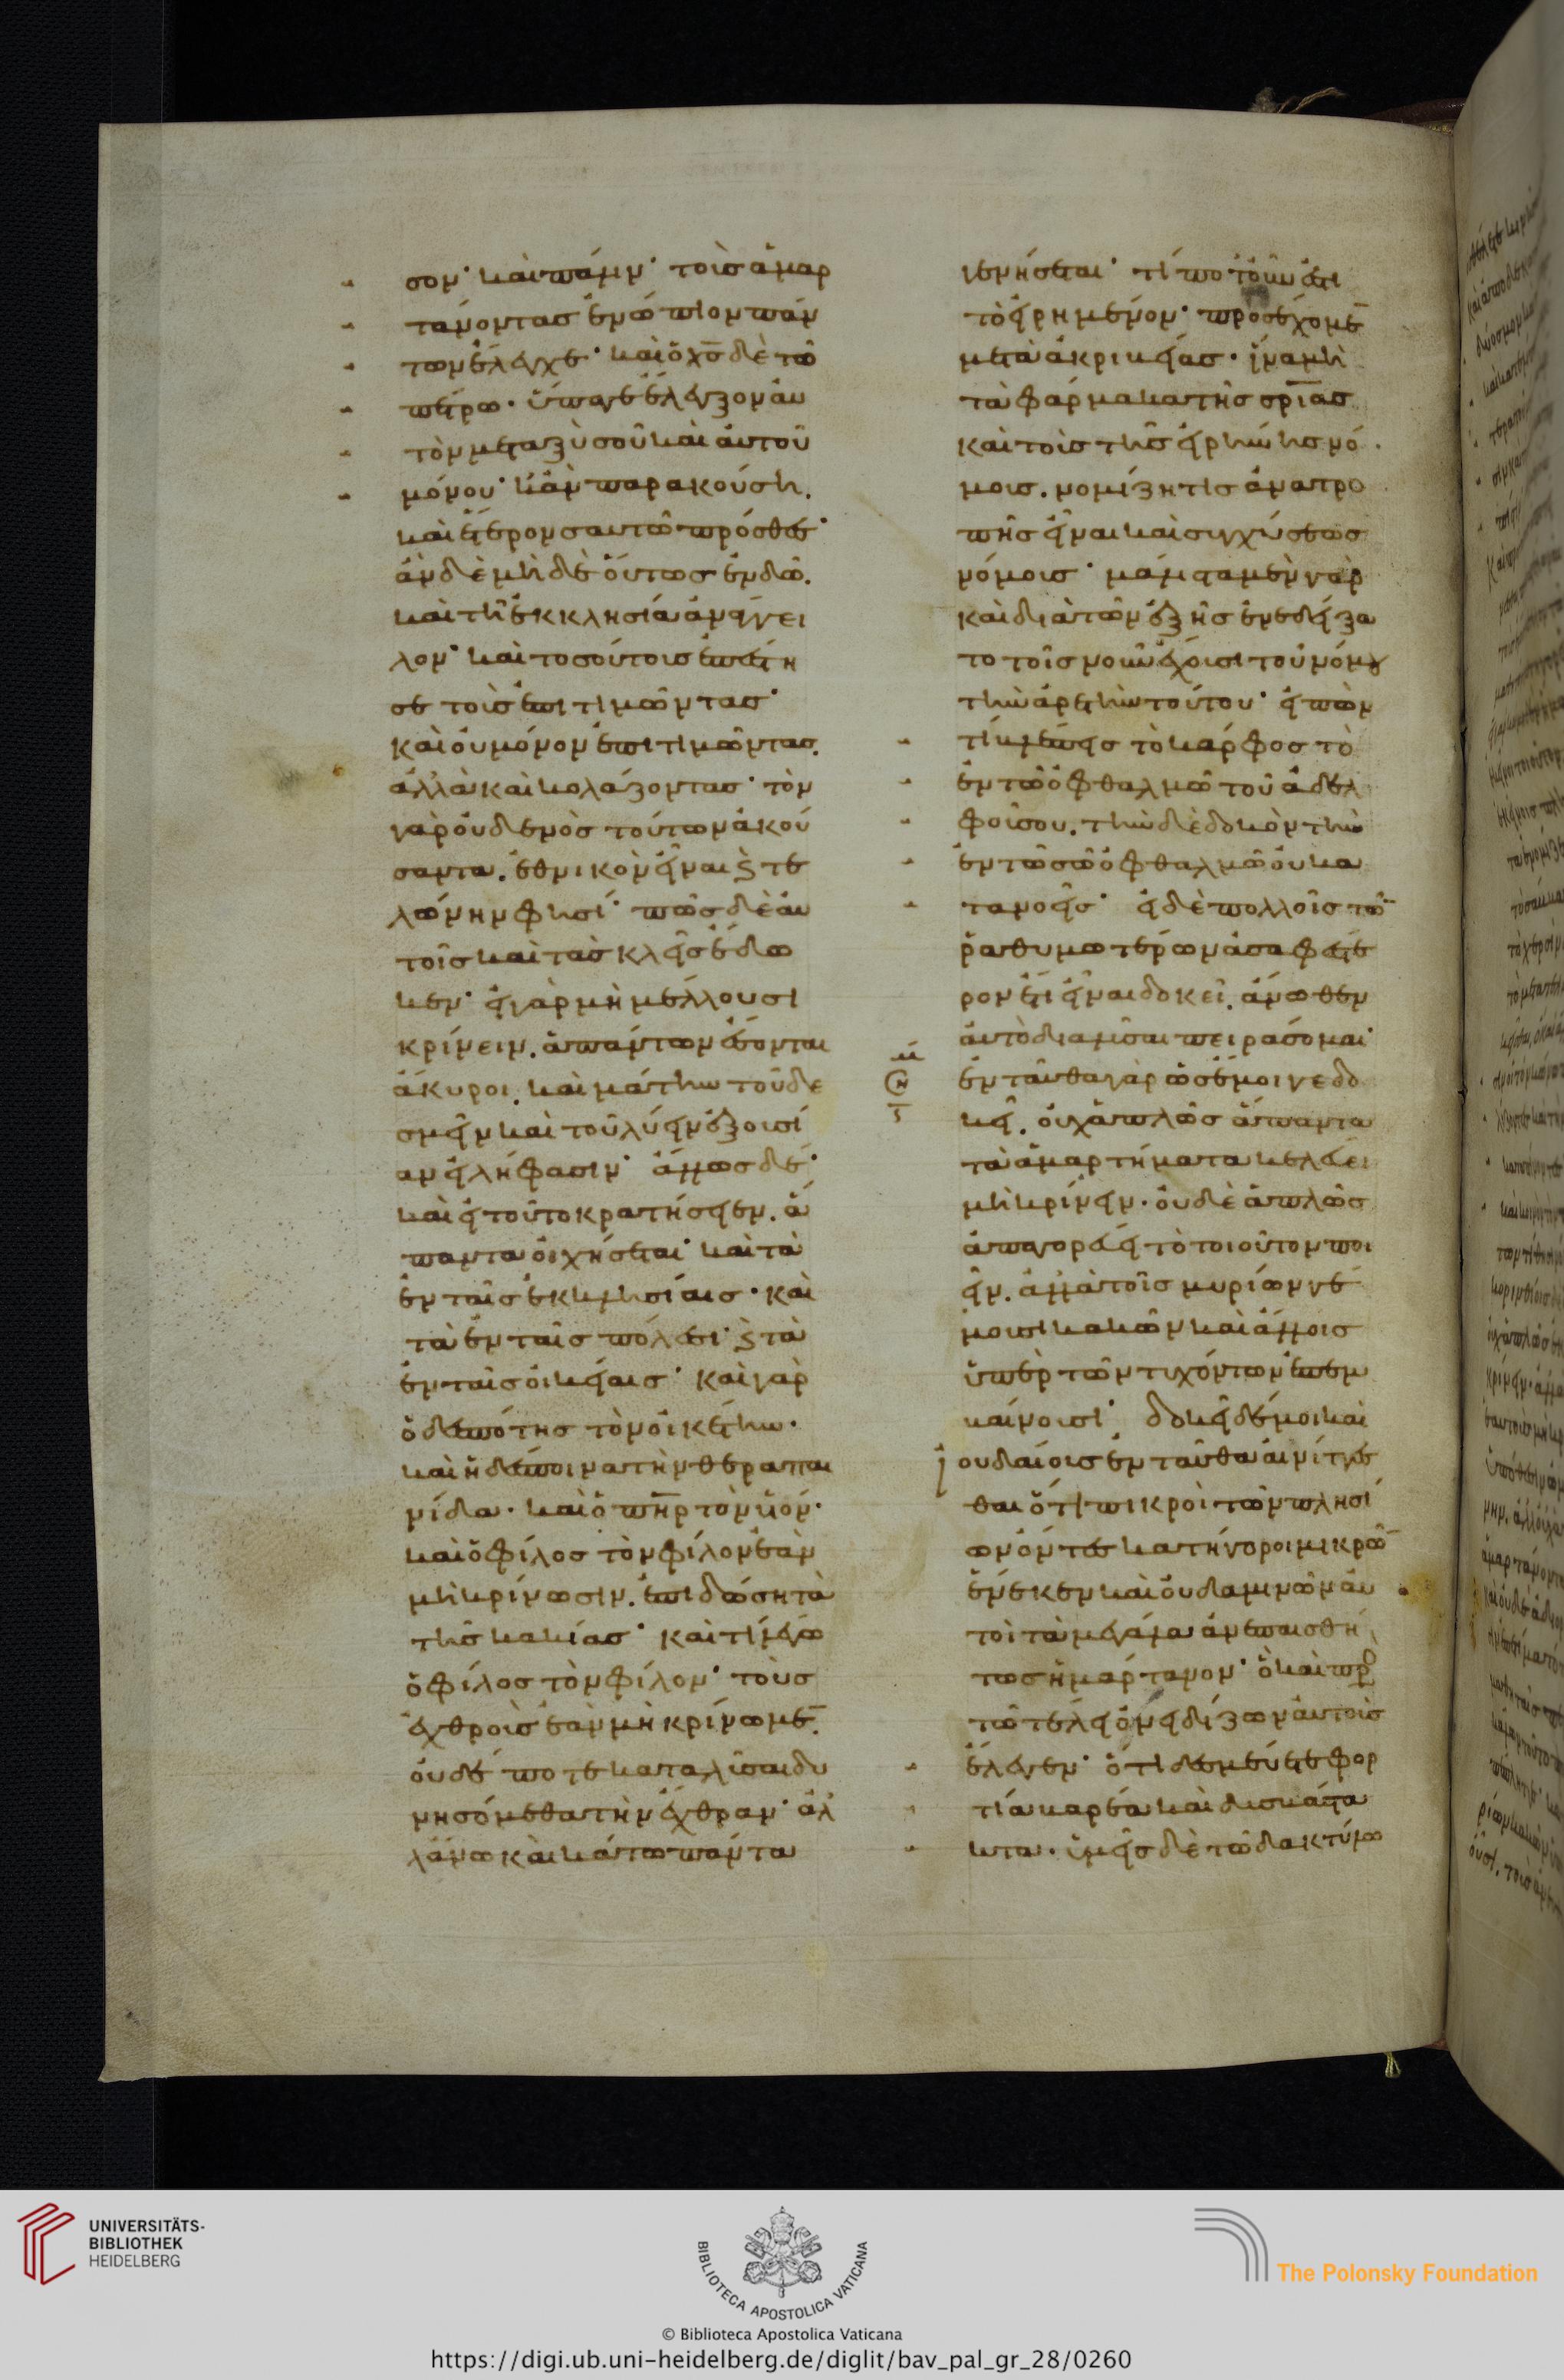 σον· καὶ πάλιν· τοὺς ἁμαρ
τάνοντας ἐνώπιον πάν
των ἔλεγχε· καὶ ὁ χ̅ς̅ δὲ τῶ
πέτρω· ὕπαγε ἔλεγξον αὐ
τὸν μεταξὺ σοῦ καὶ αὐτοῦ
μόνου· κἂν παρακούση.
καὶ ἕτερον σαυτῶ πρόσθες·
ἂν δὲ μὴ δὲ οὕτως ἐνδῶ.
καὶ τῆ ἐκκλησία ἀνάγγει
λον· καὶ τοσούτους ἐπέστη
σε τοὺς ἐπιτιμῶντας·
καὶ οὐ μόνον ἐπιτιμῶντας.
ἀλλὰ καὶ κολάζοντας· τὸν
γὰρ οὐδενὸς τούτων ἀκού
σαντα. ἐθνικὸν εἶναι ϗ τε
λώνην φησί· πῶς δὲ αὐ
τοῖς καὶ τὰς κλεῖς ἔδω
κεν· εἰ γὰρ μὴ μέλλουσι
κρίνειν. ἁπάντων ἔσονται
ἄκυροι. καὶ μάτην τοῦ δε
σμεῖν καὶ τοῦ λύειν ἐξουσί
αν εἰλήφασιν· ἄλλως δέ·
καὶ εἰ τοῦτο κρατήσειεν. ἅ
παντα οἰχήσεται· καὶ τὰ
ἐν ταῖς ἐκκλησίαις· καὶ
τὰ ἐν ταῖς πόλεσι· ϗ τὰ
ἐν ταῖς οἰκείαις· καὶ γὰρ
ὁ δεσπότης τὸν οἰκέτην·
καὶ ἡ δέσποινα τὴν θεραπαι
νίδα· καὶ ὁ π̅η̅ρ τὸν υἱόν·
καὶ ὁ φίλος τὸν φίλον ἐὰν
μὴ κρίνωσιν. ἐπιδώση τὰ
τῆς κακίας· καὶ τί λέγω
ὁ φίλος τὸν φίλον· τοὺς
ἐχθροὺς ἐὰν μὴ κρίνωμε̅.
οὐδέ ποτε καταλῦσαι δυ
νησόμεθα τὴν ἔχθραν· ἀλ
λἄνω καὶ κάτω πάντα
γενήσεται· τί ποτ οὖν ἐστι
τὸ εἰρημένον· προσέχομε̅
μετὰ ἀκριβείας· ἵνα μὴ
τὰ φάρμακα τῆς σ̅ρ̅ίας
καὶ τοὺς τῆς εἰρήνης νό
μους. νομίζη τις ἀνατρο
πῆς εἶναι καὶ συγχύσεως
νόμους· μάλιστα μὲν γὰρ
καὶ διὰ τῶν ἑξῆς ἐνεδείξα
το τοῖς νοῦν ἔχουσι τοῦ νόμου
τὴν ἀρετὴν τούτου· εἰπὼν
τί βλέπεις τὸ κάρφος τὸ
ἐν τῶ ὀφθαλμῶ τοῦ ἀδελ
φοῦ σου. τὴν δὲ δοκὸν τὴν
ἐν τῶ σῶ ὀφθαλμῶ οὐ κα
τανοεῖς· εἰ δὲ πολλοῖς τῶ̅
ῥαθυμωτέρων ἀσαφέστε
ρον ἔτι εἶναι δοκεῖ. ἄνωθεν
αὐτὸ διαλῦσαι πειράσομαι·
ἐνταῦθα γὰρ ὡς ἔμοιγε δο
κεῖ. οὐχ ἁπλῶς ἅπαντα
τὰ ἁμαρτήματα κελεύει
μὴ κρίνειν· οὐδὲ ἁπλῶς
ἀπαγορεύει τὸ τοιοῦτον ποι
εῖν. ἀλλὰ τοῖς μυρίων γέ
μουσι κακῶν καὶ ἄλλοις
ὑπὲρ τῶν τυχόντων ἐπεμ
βαίνουσι· δοκεῖ δέ μοι καὶ
ἰουδαίους ἐνταῦθα αἰνίττεσ
θαι ὅτι πικροὶ τῶν πλησί
ον ὄντες κατήγοροι μικρῶ̅
ἕνεκεν καὶ οὐδαμινῶν αὐ
τοὶ τὰ μεγάλα ἀνεπαισθή
τως ἡμάρτανον· ὃ καὶ πρ
τῶ τέλει ὀνειδίζων αὐτοῖς
ἔλεγεν· ὅτι δεσμεύετε φορ
τία βαρέα καὶ δυσβάστα
κτα· ὑμεῖς δὲ τῶ δακτύλω
UNIVERSITÄTS-
BIBLIOTHEK
HEIDELBERG
BIBLIOTECA APOSTOLICA VATICANA
The Polonsky Foundation
© Biblioteca Apostolica Vaticana
https://digi.ub.uni-heidelberg.de/diglit/bav_pal_gr_28/0260